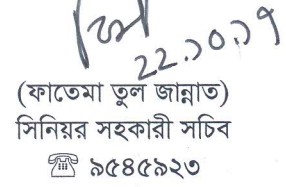 22.10.19
(ফাতেমা তুল জান্নাত)
সিনিয়র সহকারী সচিব
☎ ৯৫৪৫৯২৩